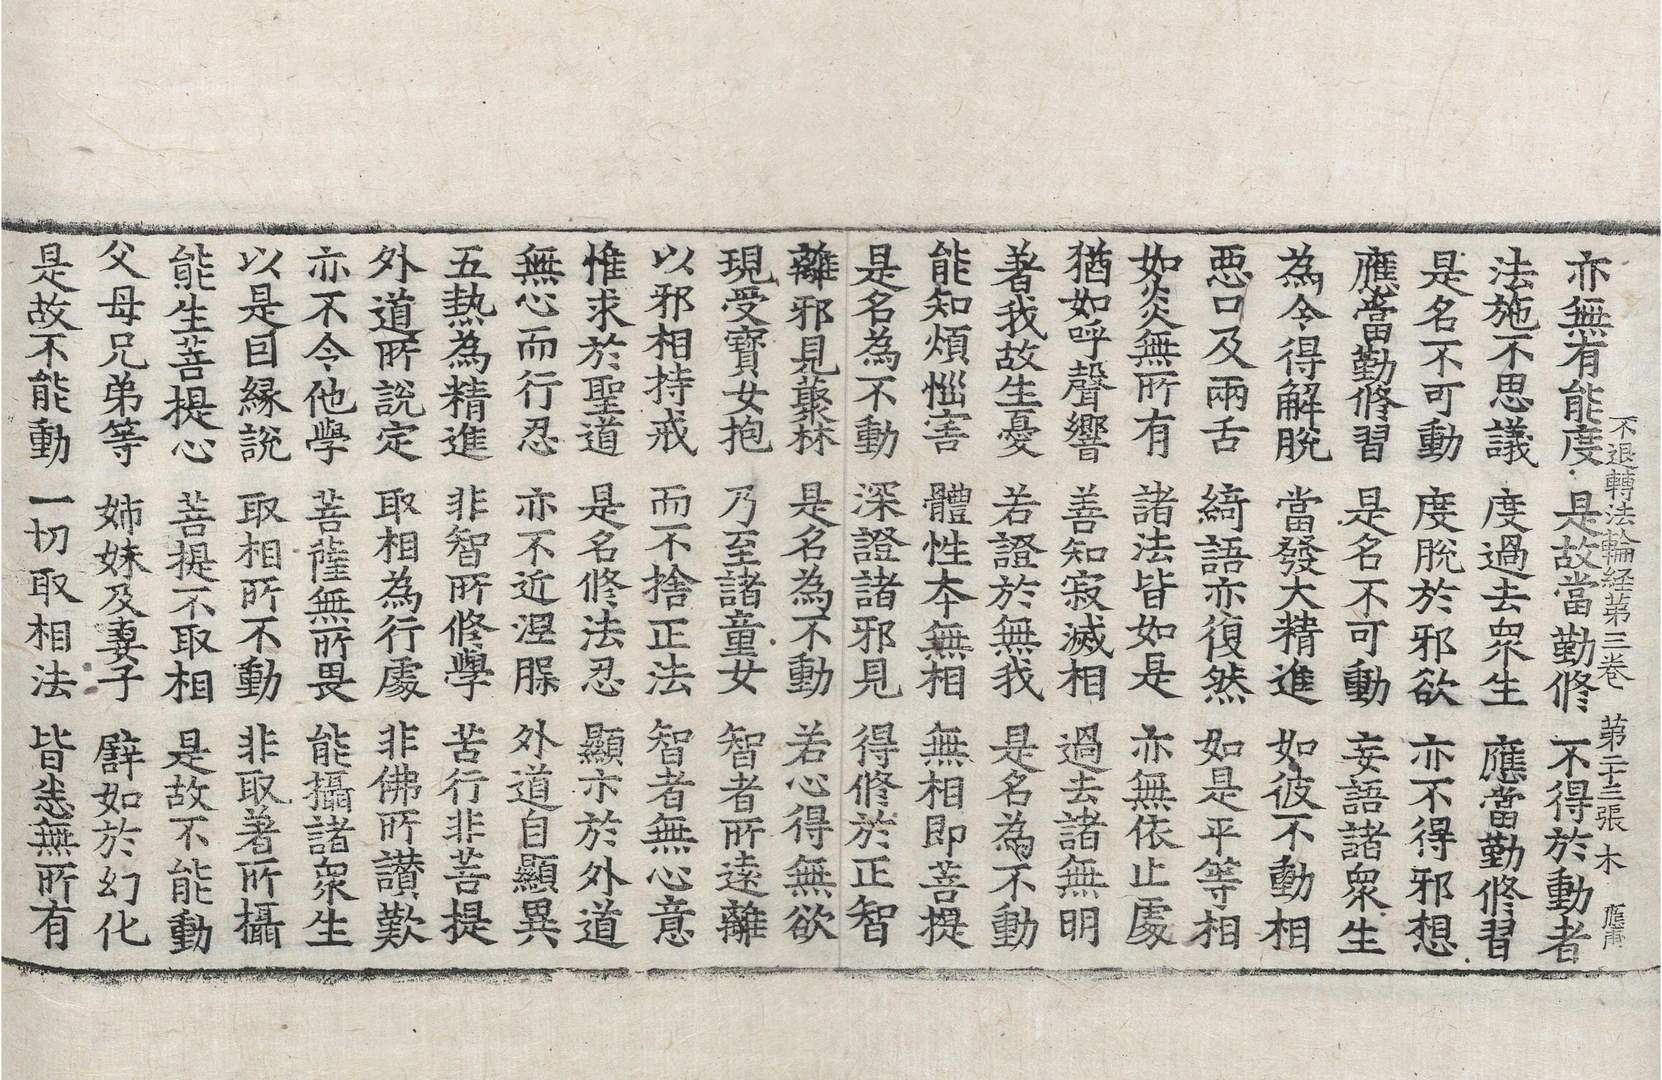 不退轉法輪経第三卷 第二十三張 木
亦無有能度 是故當勤修 不得於動者
法施不思議 度過去衆生 應當勤修習
是名不可動 度脫於邪欲 亦不得邪想
應當勤修習 是名不可動 妄語諸衆生
為令得解脫 當發大精進 如彼不動相
惡口及兩舌 綺語亦復然 如是平等相
如炎無所有 諸法皆如是 亦無依止處
猶如呼聲響 善知寂滅相 過去諸無明
著我故生憂 若證於無我 是名為不動
能知煩惱害 體性本無相 無相即菩提
是名為不動 深證諸邪見 得修於正智
離邪見藂林 是名為不動 若心得無欲
現受寶女抱 乃至諸童女 智者所遠離
以邪相持戒 而不捨正法 智者無心意
惟求於聖道 是名修法忍 顯示於外道
無心而行忍 亦不近涅槃 外道自顯異
五熱為精進 非智所修學 苦行非菩提
外道所說定 取相為行處 非佛所讃歎
亦不令他學 菩薩無所畏 能攝諸衆生
以是因縁說 取相所不動 非取著所攝
能生菩提心 菩提不取相 是故不能動
父母兄弟等 姉妹及妻子 譬如於幻化
是故不能動 一切取相法 皆悉無所有